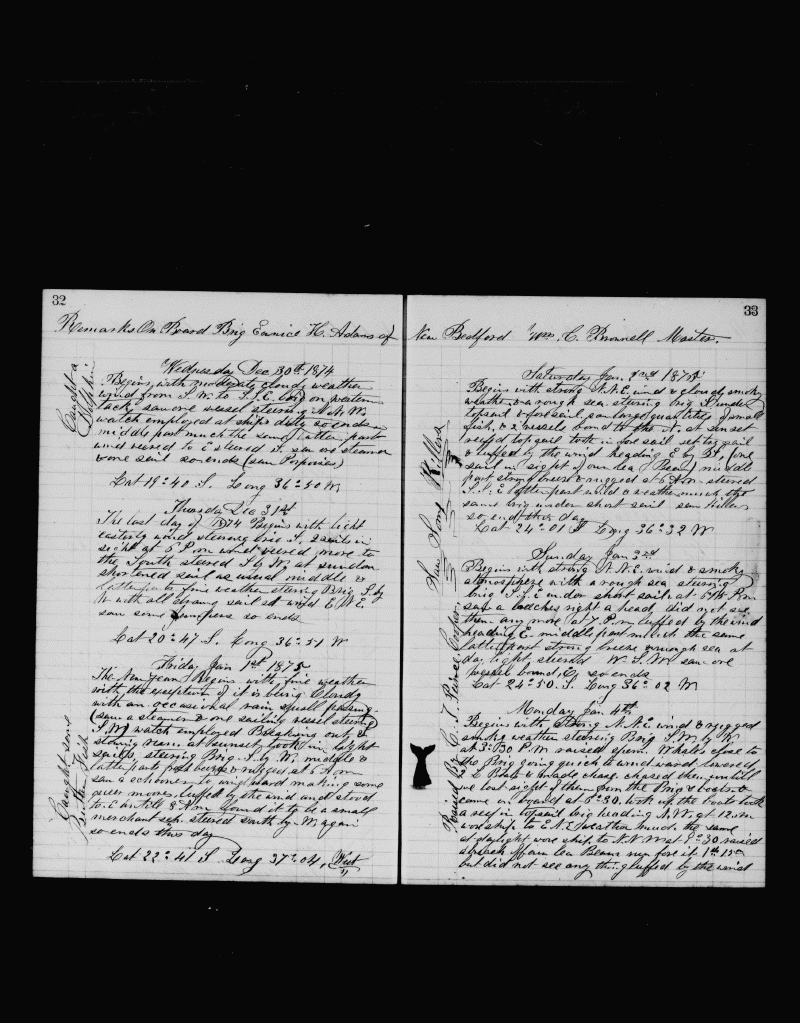 32
Remarks On Board Brig Eunice H. Adams of
Caught a
Dolphin
Wednesday Dec 30th 1874
Begins with moderate cloudy weather
wind from S.W. to S.S.E. on
tack, saw one vessel steering N.N.W.
watch employed at ships duty so ends
middle part much the same latter part
wind veered to E steered S. saw a steamer
& one sail so ends (saw Porpoises)
Lat 19°40 S. Long 36°50 W
Thursday Dec 31st
The last day of 1874 Begins with light
easterly wind steering brig S. 2 sails in
sight at 5 P.m wind veered more to
the South steered S by W. at sundown
shortened sail as usual middle &
latter parts fine weather steering Brig S. by
W with all drawing sail set wind E.N.E.
saw some jumpers so ends
Lat 20°47 S. Long 36°51 W
Friday Jan 1st 1875
Caught some
Fish
The New year Begins with fine weather
with the exception of it is being Cloudy
with an occasional rain squall passing.
(saw a steamer & one sailing vessel steering
S.W) watch employed Breaking out &
stowing rain. at sunset took in light
sails, steering Brig S. by W. middle &
latter parts & rugged at 5 A.m
saw a schooner to windward making some
queer moves, luffed by the wind and stood
to E untill 8 A.m found it to be a small
merchant sch. steered south by W again
so ends this day
Lat 22°41 S Long 37°04, West
33
New Bedford Wm. C. Brownell Master.
Saturday Jan. 2nd 1875
Saw Some Killers
Begins with strong N.N.E. wind & cloudy smoky
weather & a rough sea steering brig S under
topsail & foresail, saw large quantities of small
fish, & 2 vessels bound to the N. at sunset
reefed topsail took in foresail set try sail
& luffed by the wind heading E by S, (one
sail in sight of our lea Beam) middle
part strong breeze & rugged at 5 A.m steered
S.S.E latter part wind & weather much the
same brig under short sail saw Killers
so ends this day
Lat 24°01 S Long 36°32 W
Sunday Jan 3rd
Begins with strong N.N.E. wind & smoky
atmosphere with a rough sea steering
brig S.S.E under short sail at P.m
saw a right a head, did not see
them any more at 7 P.m luffed by the wind
heading E. middle part much the same
latter part strong breeze & rough sea at
day light steered W.S.W. saw one
vessel bound E so ends
Lat 24°50 S. Long 36°02 W
Monday Jan 4th
Raised By C. T. Pierce Cooper
Begins with Strong N.N.E. wind & rugged
smoky weather steering Brig S.W. by W
at 3:30 P.M raised Sperm Whales close to
the Brig going quick to windward lowered
2 Boats & made chase. chased them untill
we lost sight of them from the Brig & boats &
came on board at 5:30. took up the boats took
a reef in topsail brig heading N.W. at 12 m
wore ship to E.N.E weather much the same
at daylight wore ship to N.N.W at 9:30 raised
a spout from lea Beam run for it 1h 15m
but did not see any thing luffed by the wind